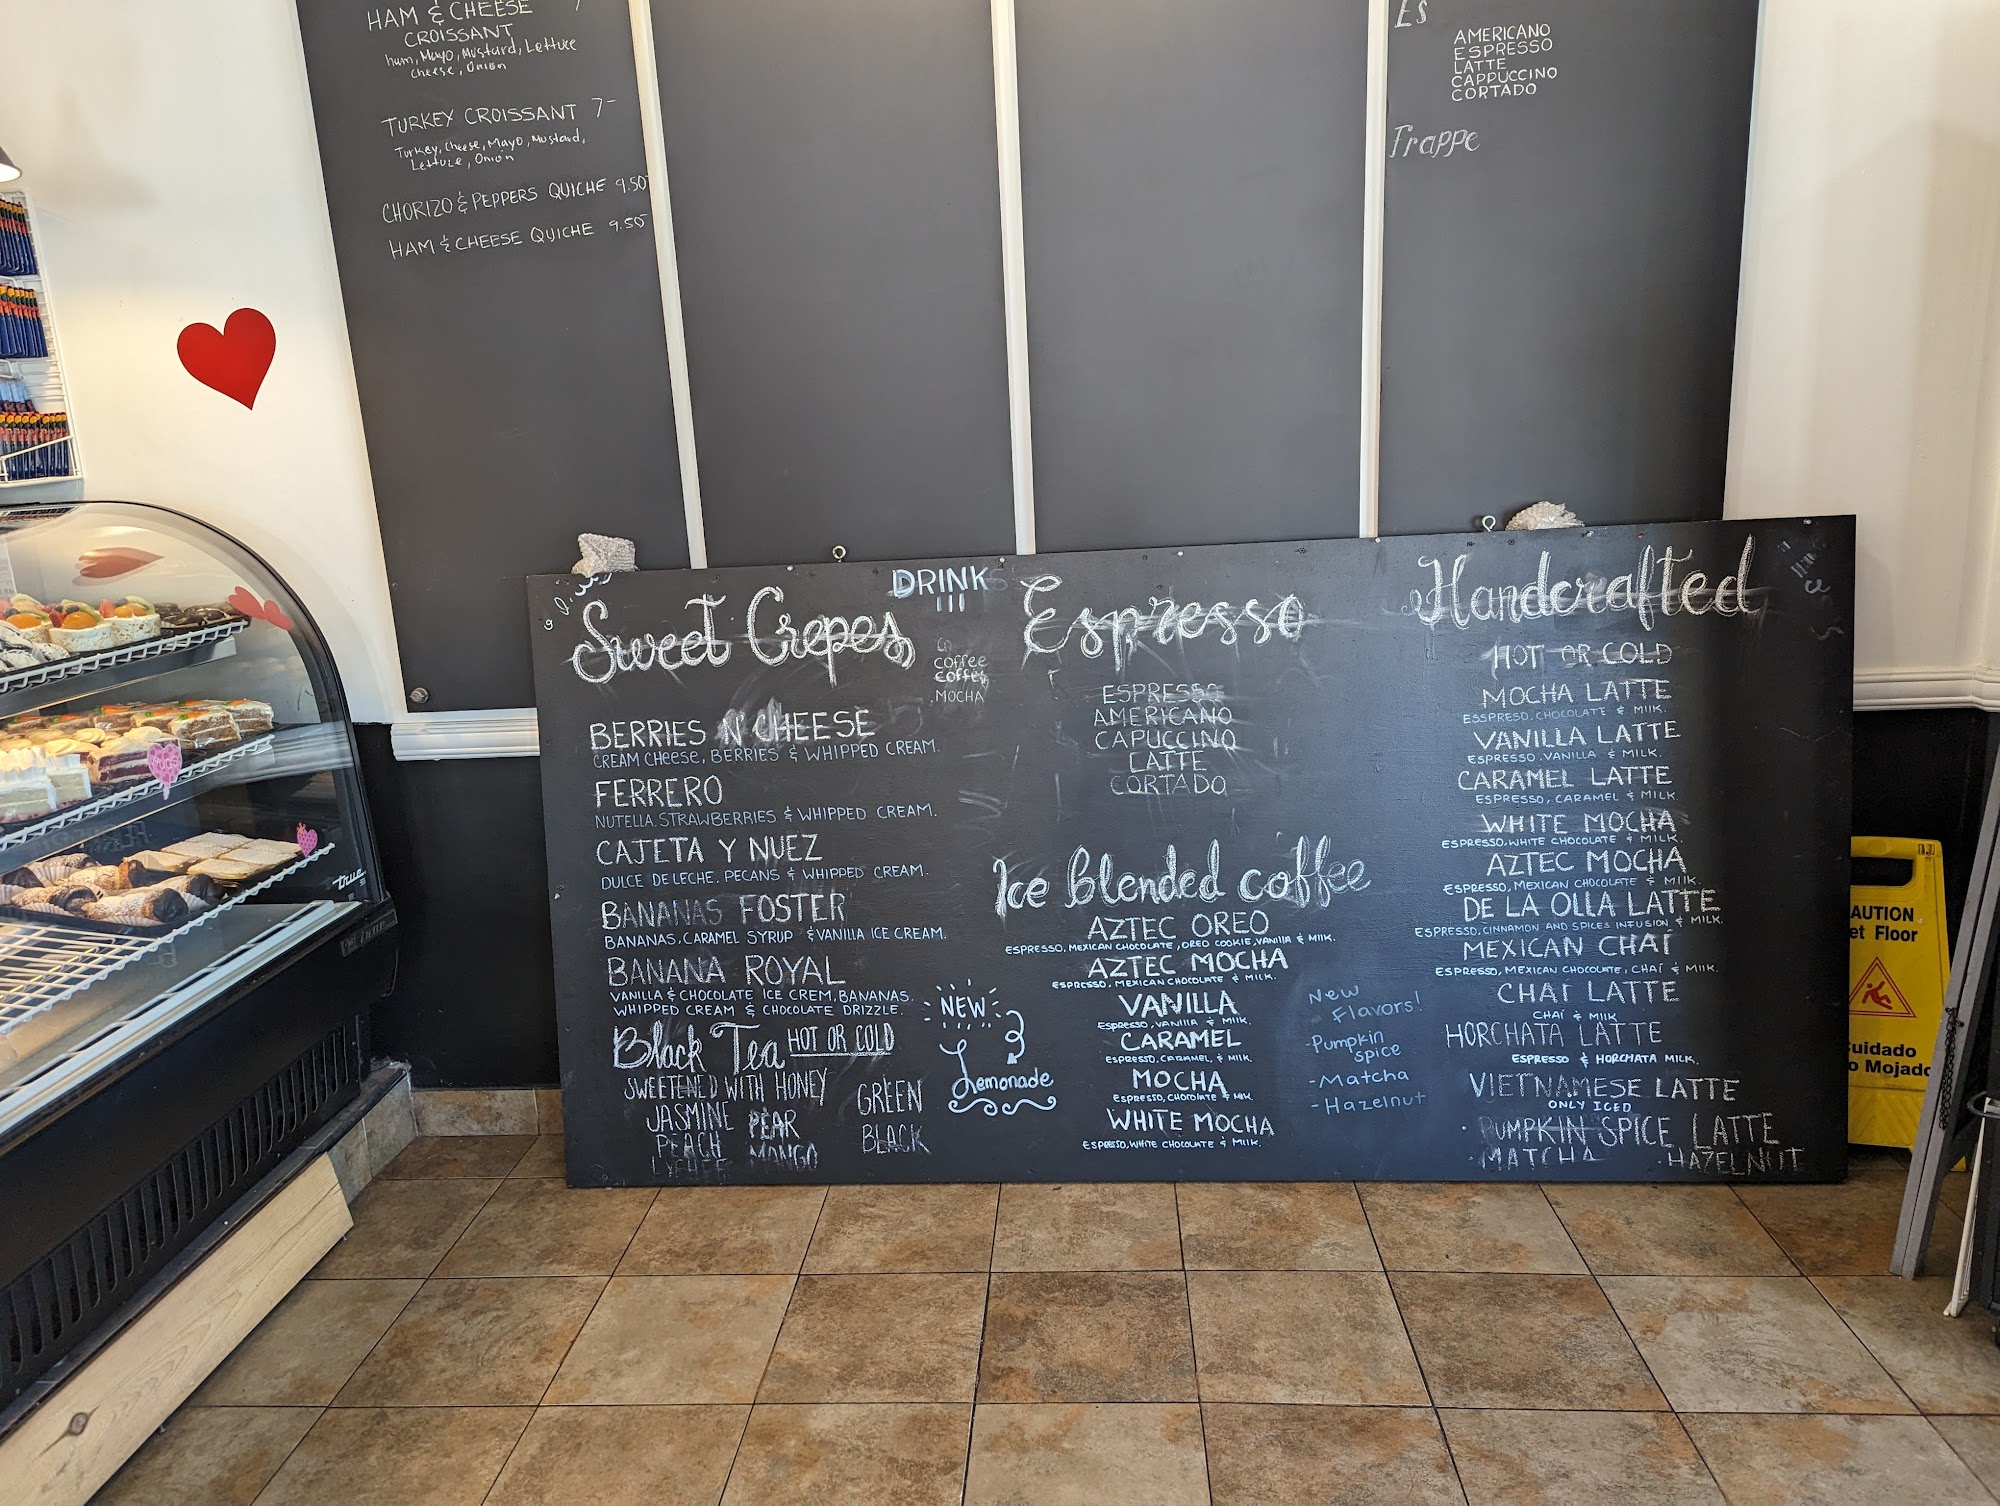 HAM & CHEESE
CROISSANT
ham, Mayo, Mustard, Lettuce
cheese, Onion
TURKEY CROISSANT 7-
Turkey, Cheese, Mayo, Mustard,
Lettuce, Onion
CHORIZO & PEPPERS QUICHE 9.50
HAM & CHEESE QUICHE 9.50
Es
AMERICANO
ESPRESSO
LATTE
CAPPUCCINO
CORTADO
Frappe
HUGS
true
DRINK
Sweet Crepes
coffee
coffee
MOCHA
BERRIES N' CHEESE
CREAM CHEESE, BERRIES & WHIPPED CREAM.
FERRERO
NUTELLA. STRAWBERRIES & WHIPPED CREAM.
CAJETA Y NUEZ
DULCE DE LECHE. PECANS & WHIPPED CREAM.
BANANAS FOSTER
BANANAS, CARAMEL SYRUP & VANILLA ICE CREAM.
BANANA ROYAL
VANILLA & CHOCOLATE ICE CREM, BANANAS.
WHIPPED CREAM & CHOCOLATE DRIZZLE.
Black Tea HOT OR COLD
SWEETENED WITH HONEY
JASMINE PEAR GREEN
PEACH MANGO BLACK
LYCHEE
NEW
Lemonade
Espresso
ESPRESSO
AMERICANO
CAPUCCINO
LATTE
CORTADO
Ice blended coffee
AZTEC OREO
ESPRESSO, MEXICAN CHOCOLATE, OREO COOKIE, VANIlIA & MIlK.
AZTEC MOCHA
ESPRESSO, MEXICAN CHOCOLATE & MIlK.
VANILLA
ESPRESSO, VANIlIA & MIlK.
CARAMEL
ESPRESSO, CARAMEL, & MIlK.
MOCHA
ESPRESSO, CHOCOLATE & MIlK.
WHITE MOCHA
ESPRESSO, WHITE CHOCOLATE & MIlK.
New
Flavors!
-Pumpkin
spice
-Matcha
-Hazelnut
Handcrafted
HOT OR COLD
MOCHA LATTE
ESSPRESO, CHOCOLATE & MIlK.
VANILLA LATTE
ESPRESSO, VANILLA & MILK.
CARAMEL LATTE
ESPRESSO, CARAMEL & MILK.
WHITE MOCHA
ESPRESSO, WHITE CHOCOLATE & MILK.
AZTEC MOCHA
ESPRESSO, MEXICAN CHOCOLATE & MIlK.
DE LA OLLA LATTE
ESPRESSO, CINNAMON AND SPICES INFUSION & MILK.
MEXICAN CHAÍ
ESPRESSO, MEXICAN CHOCOLATE, CHAÍ & MIlK.
CHAÍ LATTE
CHAÍ & MIlK
HORCHATA LATTE
ESPRESSO & HORCHATA MILK.
VIETNAMESE LATTE
ONLY ICED
· PUMPKIN SPICE LATTE
· MATCHA · HAZELNUT
AUTION
et Floor
uidado
o Mojado